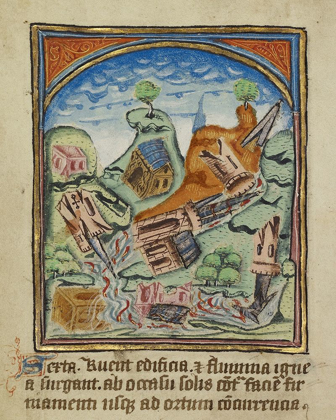 Sexta. Ruent edificia. ⁊ flumina igne
a surgent. ab occasu solis cōt̄ faciē fir
mamenti usq; ad ortum cōcurrencia.